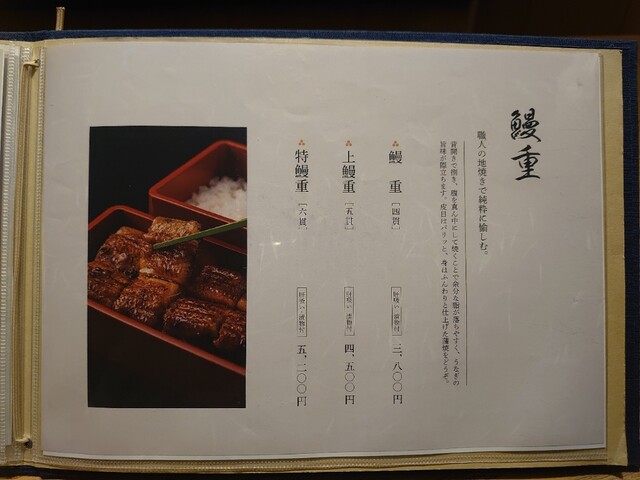 鰻重
職人の地焼きで純粋に愉しむ。
背開きで捌き、腹を真ん中にして焼くことで余分な脂が落ちやすく、うなぎの
旨味が際立ちます。皮目はパリッと、身はふんわりと仕上げた蒲焼をどうぞ。
鰻 重 [四貫] 肝吸い・漬物付 三、八〇〇円
上鰻重 [五貫] 肝吸い・漬物付 四、五〇〇円
特鰻重 [六貫] 肝吸い・漬物付 五、二〇〇円